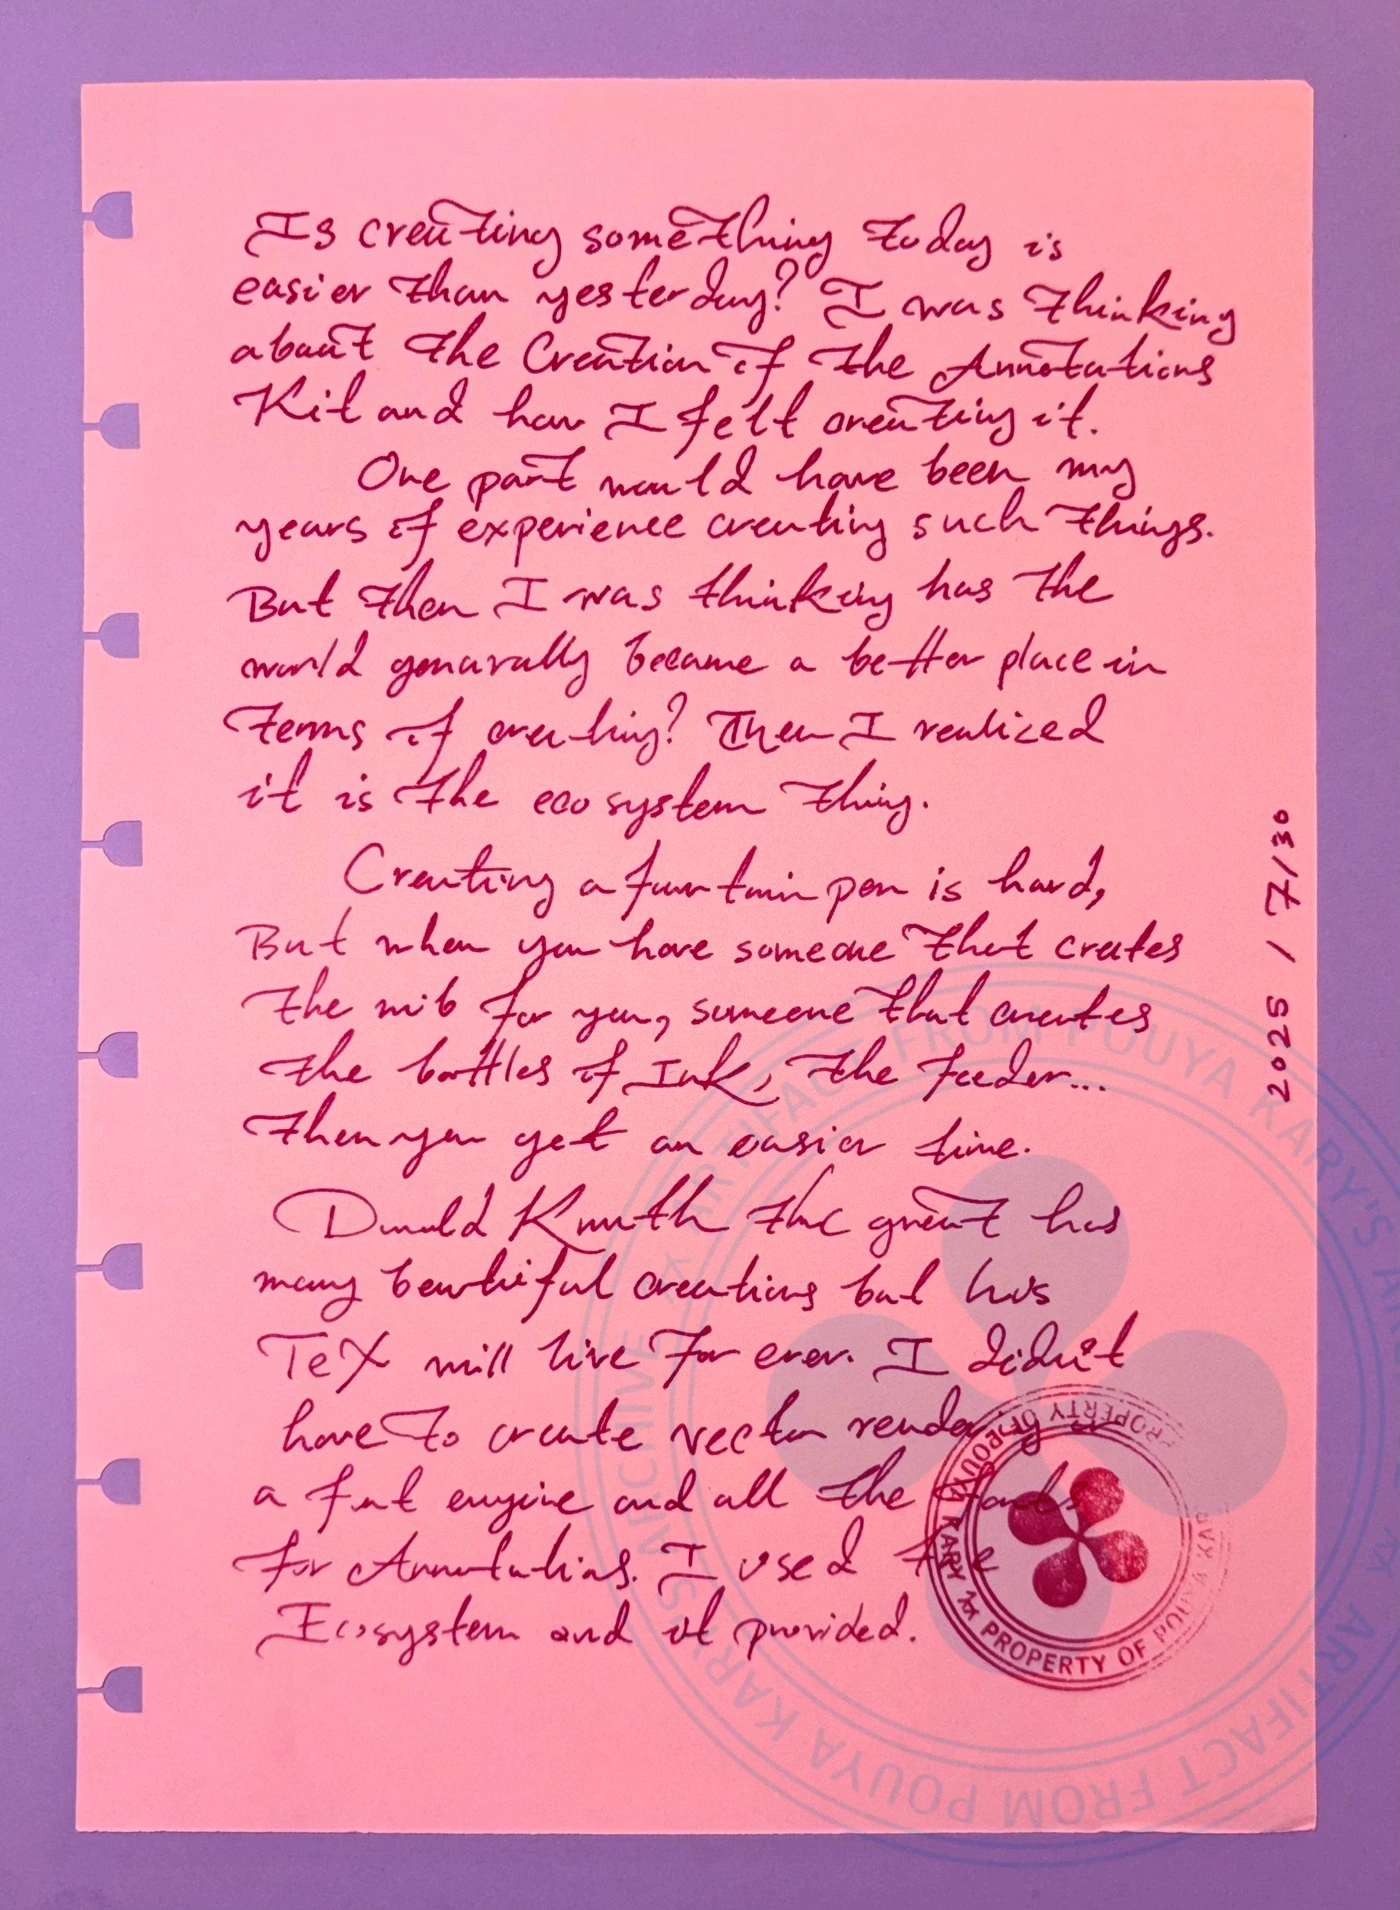 Is creating something today is
easier than yesterday? I was thinking
about the Creation of the Annotations
Kit and how I felt creating it.
One part would have been my
years of experience creating such things.
But then I was thinking has the
world generally became a better place in
terms of creating? Then I realized
it is the eco system thing.
Creating a fountain pen is hard,
But when you have someone that creates
the nib for you, someone that creates
the bottles of Ink, the feeder...
then you get an easier time.
Donald Knuth the great has
many beautiful creations but his
TeX will live for ever. I didn't
have to create vector rendering or
a font engine and all the fonts
for Annotations. I used the
Ecosystem and it provided.
2025 / 7/30
PROPERTY OF POUYA KARY
PROPERTY OF POUYA KARY
ARTIFACT FROM POUYA KARY'S ARCHIVE
ARTIFACT FROM POUYA KARY'S ARCHIVE